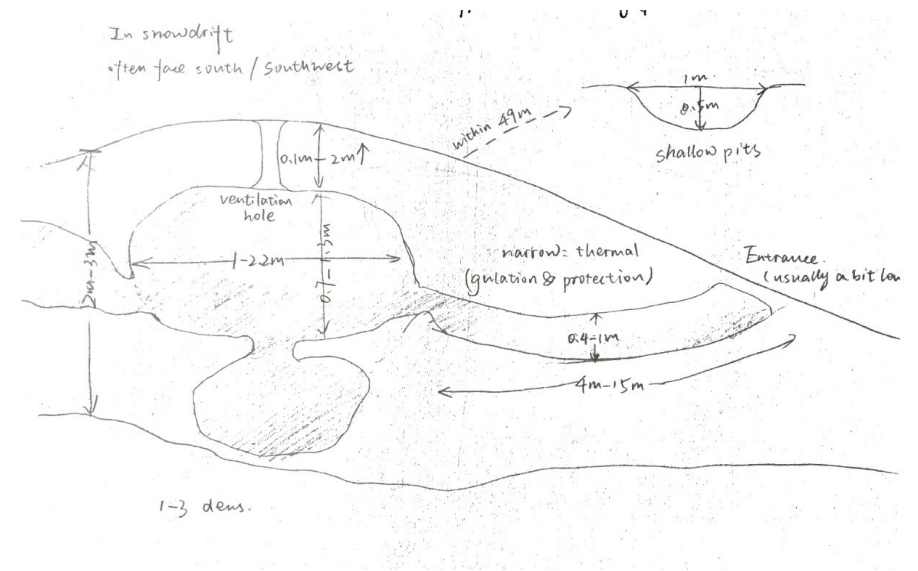 In snowdrift
often face south / southwest
1m
0.5m
within 49m
shallow pits
0.1m-2m
ventilation
hole
2m-3m
1-2.2m
0.7-1.3m
narrow = thermal
(gulation & protection)
Entrance.
(usually a bit
0.4-1m
4m-15m
1-3 dens.